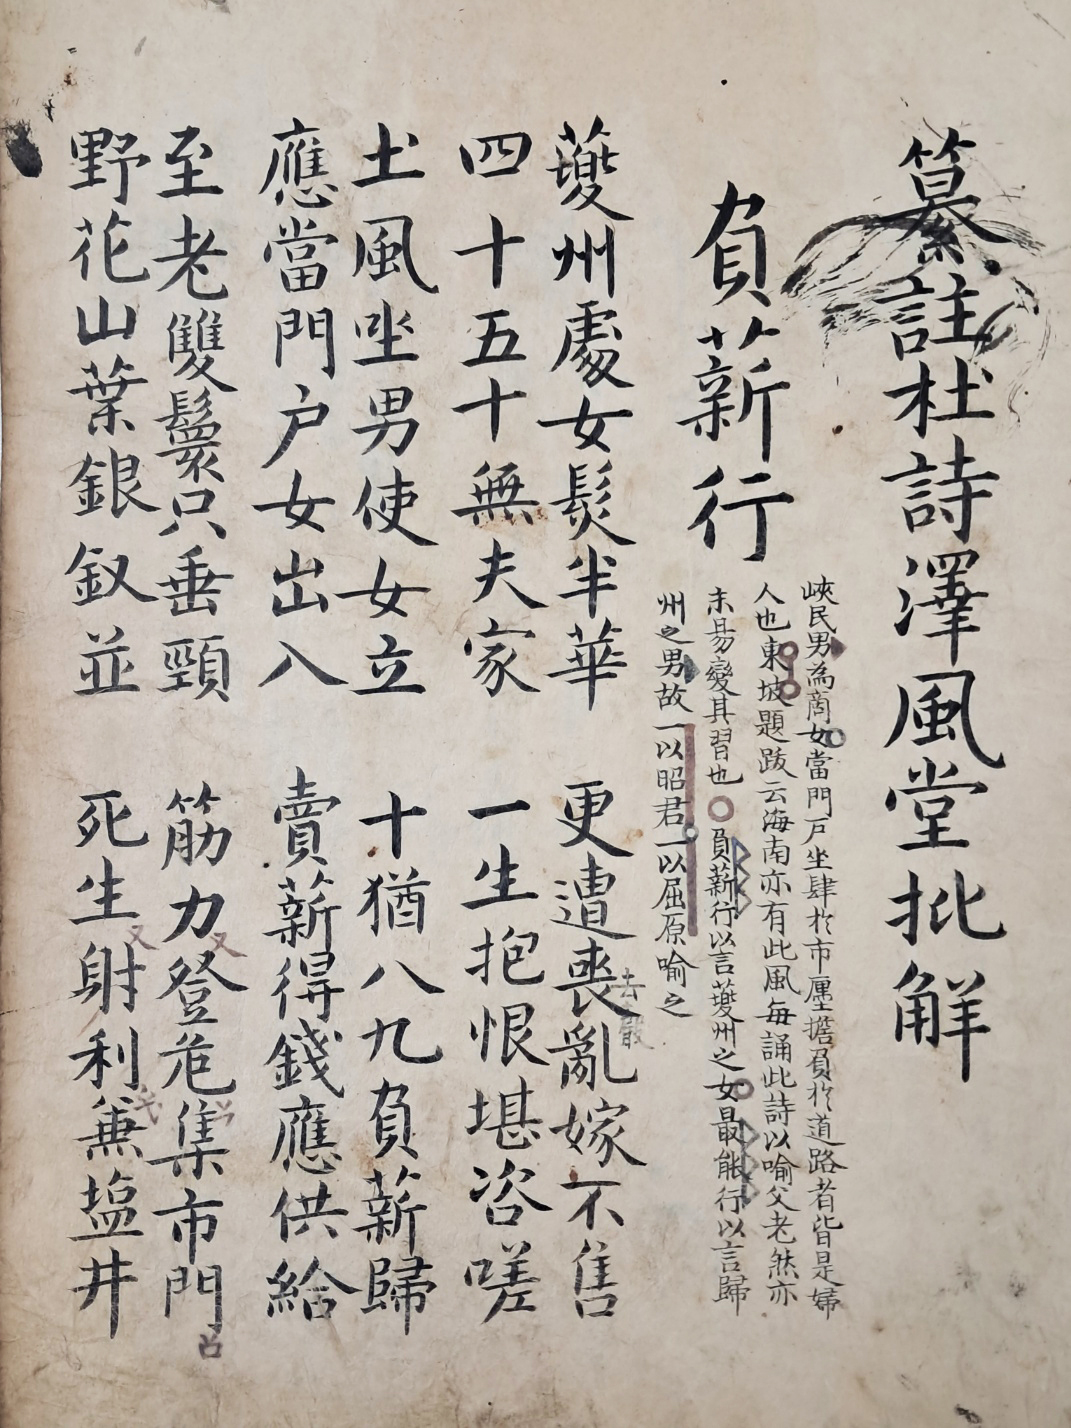 纂註杜詩澤風堂批解
負薪行
峽民男為商女當門戶坐肆於市廛擔負於道路者皆是婦
人也東坡題跋云海南亦有此風每誦此詩以喻父老然亦
未易變其習也○負薪行以言夔州之女最能行以言歸
州之男故一以昭君一以屈原喻之
夔州處女髮半華 更遭喪亂嫁不售
四十五十無夫家 一生抱恨堪咨嗟
土風坐男使女立 十猶八九負薪歸
應當門戶女出入 賣薪得錢應供給
至老雙鬟只垂頸 筋力登危集市門
野花山葉銀釵並 死生射利兼塩井